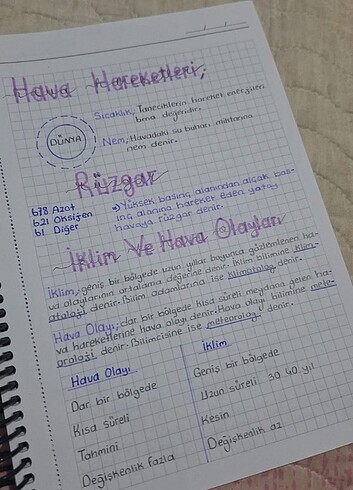 Hava Hareketleri;
Sıcaklık, Taneciklerin hareket enerjileri
bına değeridir.
DÜNYA
Nem, Havadaki su buharı miktarına
nem denir.
Rüzgar
%78 Azot
%21 Oksijen
%1 Diğer
→Yüksek basınç alanından alçak bas-
ınç alanına hareket eden yatay
havaya rüzgar denir.
İklim Ve Hava Olayları
İklim, geniş bir bölgede uzun yıllar boyunca gözlemlenen ha-
va olaylarının ortalama değerine denir. İklim bilimine klim-
atoloji denir. Bilim adamlarına ise klimatolog denir.
Hava Olayı; dar bir bölgede kısa süreli meydana gelen ha-
va hareketlerine hava olayı denir. Hava olayı bilimine mete-
oroloji denir. Bilimcisine ise meteorolog denir.
Hava Olayı
Dar bir bölgede
Kısa süreli
Tahmini
Değişkenlik fazla
İklim
Geniş bir bölgede
Uzun süreli 30 40 yıl
Kesin
Değişkenlik az